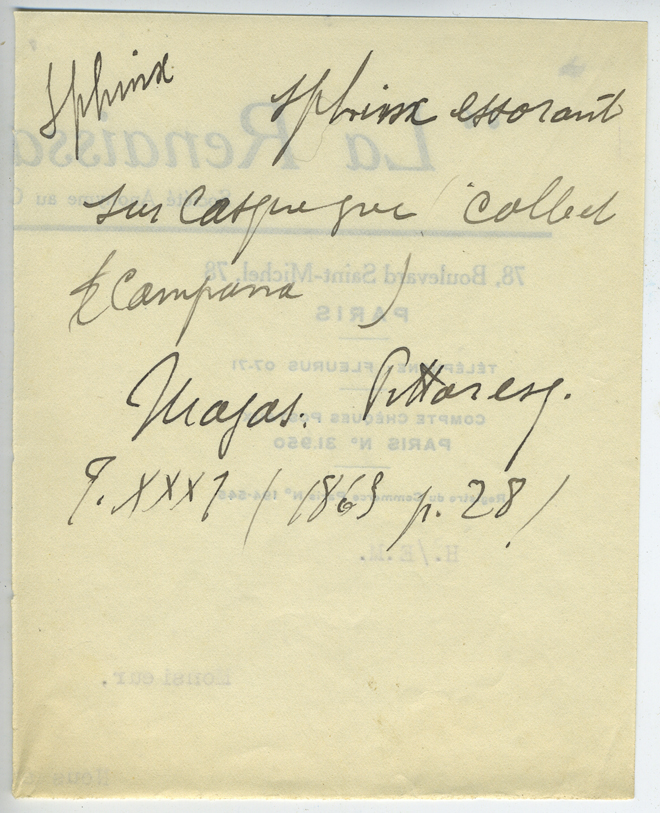 Sphinx Sphinx essorant
sur casque grec (collect
Campana )
Magas. Pittoresq.
T. XXXI (1863 p. 28)
La Renaissa
Société Anonyme au C
78, Boulevard Saint-Michel, 78
PARIS
TÉLÉPHONE FLEURUS 07-71
COMPTE CHÈQUES POS
PARIS N° 31.950
Registre du Commerce Paris N°
H./E.M.
Monsieur.
Nous